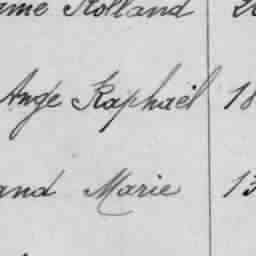 ame Rolland 20
Ange Raphaël 18
and Marie 13